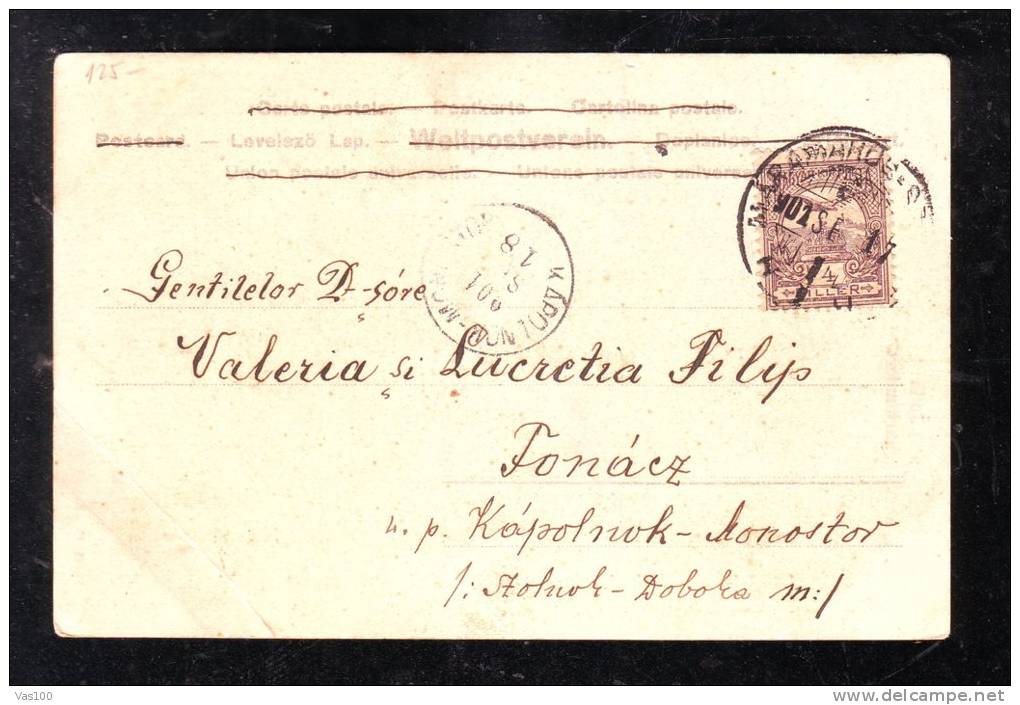 125-
Carte postale. Postkarte. Cartolina postale.
Postcard. — Levelező Lap. — Weltpostverein.
Union postale universelle. Unione postale
MÁRAMAROS
902 SE
17
FILLER
KÁPOLNOK-MON
18
Gentilelor D-șóre
Valeria și Lucretia Filip
Fonácz
u. p. Kápolnok-Monostor
/: Szolnok-Doboka m:/
Vas100
www.delcampe.net